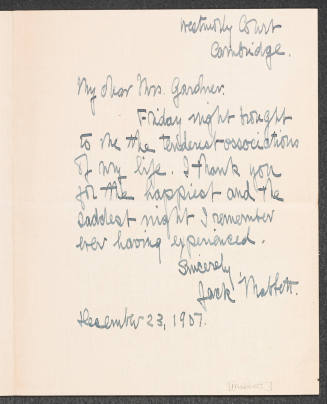 Westmorly Court
Cambridge.
My dear Mrs. Gardner.
Friday night brought
to me the tenderest associations
of my life. I thank you
for the happiest and the
saddest night I remember
ever having experienced.
Sincerely
Jack Mabbett.
December 23, 1907.